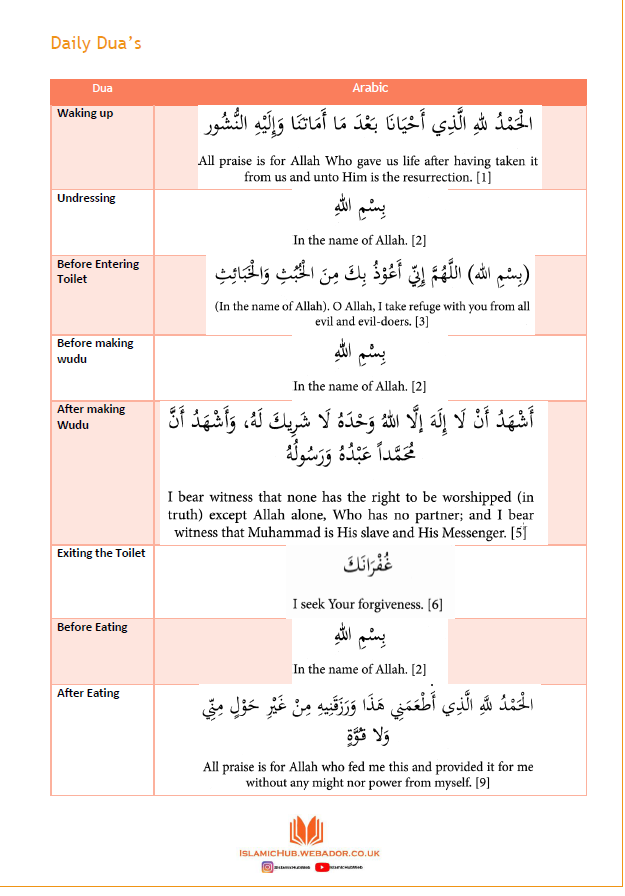 Daily Dua’s
Dua
Arabic
Waking up
الْحَمْدُ للهِ الَّذِي أَحْيَانَا بَعْدَ مَا أَمَاتَنَا وَإِلَيْهِ النُّشُور
All praise is for Allah Who gave us life after having taken it
from us and unto Him is the resurrection. [1]
Undressing
بِسْمِ اللهِ
In the name of Allah. [2]
Before Entering
Toilet
(بِسْمِ الله) اللَّهُمَّ إِنِّي أَعُوْذُ بِكَ مِنَ الْخُبُثِ وَالْخَبَائِثِ
(In the name of Allah). O Allah, I take refuge with you from all
evil and evil-doers. [3]
Before making
wudu
بِسْمِ اللهِ
In the name of Allah. [2]
After making
Wudu
أَشْهَدُ أَنْ لَا إِلَهَ إِلَّا اللهُ وَحْدَهُ لَا شَرِيكَ لَهُ، وَأَشْهَدُ أَنَّ
مُحَمَّداً عَبْدُهُ وَرَسُولُهُ
I bear witness that none has the right to be worshipped (in
truth) except Allah alone, Who has no partner; and I bear
witness that Muhammad is His slave and His Messenger. [5]
Exiting the Toilet
غُفْرَانَكَ
I seek Your forgiveness. [6]
Before Eating
بِسْمِ اللهِ
In the name of Allah. [2]
After Eating
الْحَمْدُ للَّهِ الَّذِي أَطْعَمَنِي هَذَا وَرَزَقَنِيهِ مِنْ غَيْرِ حَوْلٍ مِنِّي
وَلا قُوَّةٍ
All praise is for Allah who fed me this and provided it for me
without any might nor power from myself. [9]
IslamicHub.webador.co.uk